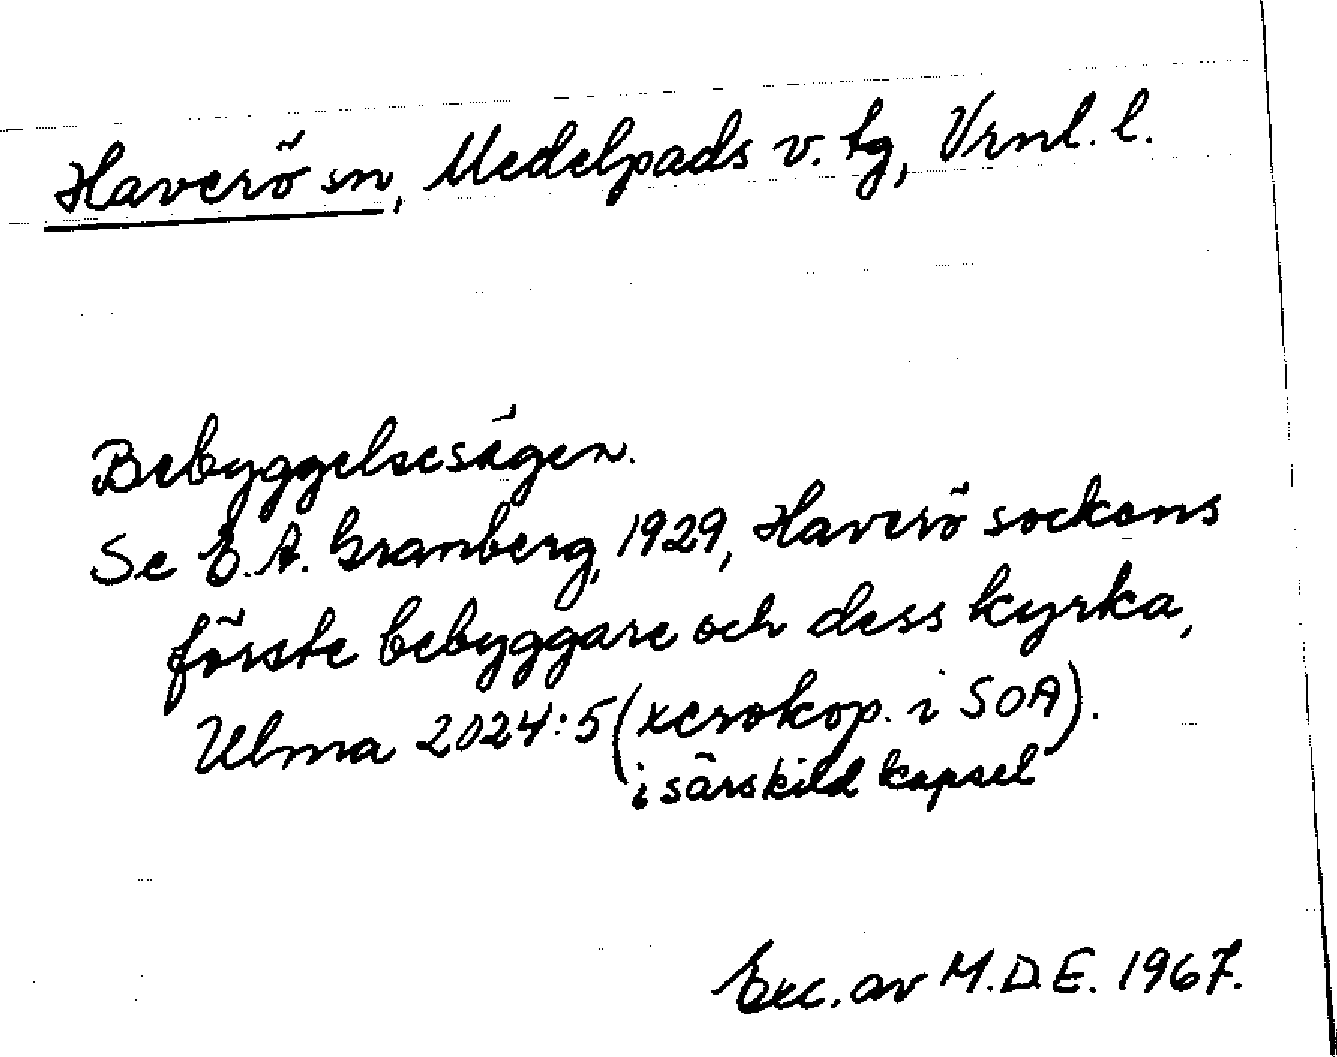 Haverö sn, Medelpads v. tg, Vrnl. l.
Bebyggelsesägen.
Se E. A. Granberg, 1929, Haverö sockens
förste bebyggare och dess kyrka,
Ulma 2024:5 (xerokop. i SOA).
i särskild kapsel
Exc. av M.D.E. 1967.